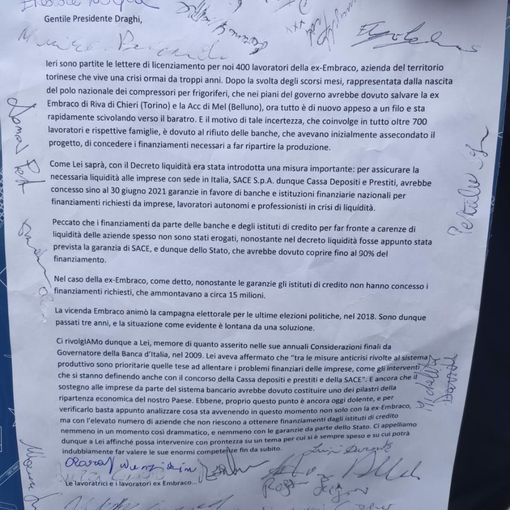 Gentile Presidente Draghi,
Ieri sono partite le lettere di licenziamento per noi 400 lavoratori della ex-Embraco, azienda del territorio
torinese che vive una crisi ormai da troppi anni. Dopo la svolta degli scorsi mesi, rappresentata dalla nascita
del polo nazionale dei compressori per frigoriferi, che nei piani del governo avrebbe dovuto salvare la ex
Embraco di Riva di Chieri (Torino) e la Acc di Mel (Belluno), ora tutto è di nuovo appeso a un filo e sta
rapidamente scivolando verso il baratro. E il motivo di tale incertezza, che coinvolge in tutto oltre 700
lavoratori e rispettive famiglie, è dovuto al rifiuto delle banche, che avevano inizialmente assecondato il
progetto, di concedere i finanziamenti necessari a far ripartire la produzione.
Come Lei saprà, con il Decreto liquidità era stata introdotta una misura importante: per assicurare la
necessaria liquidità alle imprese con sede in Italia, SACE S.p.A. dunque Cassa Depositi e Prestiti, avrebbe
concesso sino al 30 giugno 2021 garanzie in favore di banche e istituzioni finanziarie nazionali per
finanziamenti richiesti da imprese, lavoratori autonomi e professionisti in crisi di liquidità.
Peccato che i finanziamenti da parte delle banche e degli istituti di credito per far fronte a carenze di
liquidità delle aziende spesso non sono stati erogati, nonostante nel decreto liquidità fosse appunto stata
prevista la garanzia di SACE, e dunque dello Stato, che avrebbe dovuto coprire fino al 90% del
finanziamento.
Nel caso della ex-Embraco, come detto, nonostante le garanzie gli istituti di credito non hanno concesso i
finanziamenti richiesti, che ammontavano a circa 15 milioni.
La vicenda Embraco animò la campagna elettorale per le ultime elezioni politiche, nel 2018. Sono dunque
passati tre anni, e la situazione come evidente è lontana da una soluzione.
Ci rivolgIAMo dunque a Lei, memore di quanto asserito nelle sue annuali Considerazioni finali da
Governatore della Banca d'Italia, nel 2009. Lei aveva affermato che "tra le misure anticrisi rivolte al sistema
produttivo sono prioritarie quelle tese ad allentare i problemi finanziari delle imprese, come gli interventi
che si stanno definendo anche con il concorso della Cassa depositi e prestiti e della SACE". E ancora che il
sostegno alle imprese da parte del sistema bancario avrebbe dovuto costituire uno dei pilastri della
ripartenza economica del nostro Paese. Ebbene, proprio questo punto è ancora oggi dolente, e per
verificarlo basta appunto analizzare cosa sta avvenendo in questo momento non solo con la ex-Embraco,
ma con l'elevato numero di aziende che non riescono a ottenere finanziamenti dagli istituti di credito
nemmeno in un momento così drammatico, e nemmeno con le garanzie da parte dello Stato. Ci appelliamo
dunque a Lei affinché possa intervenire con prontezza su un tema per cui si è sempre speso e su cui potrà
indubbiamente far valere le sue enormi competenze fin da subito.
Le lavoratrici e i lavoratori ex Embraco...